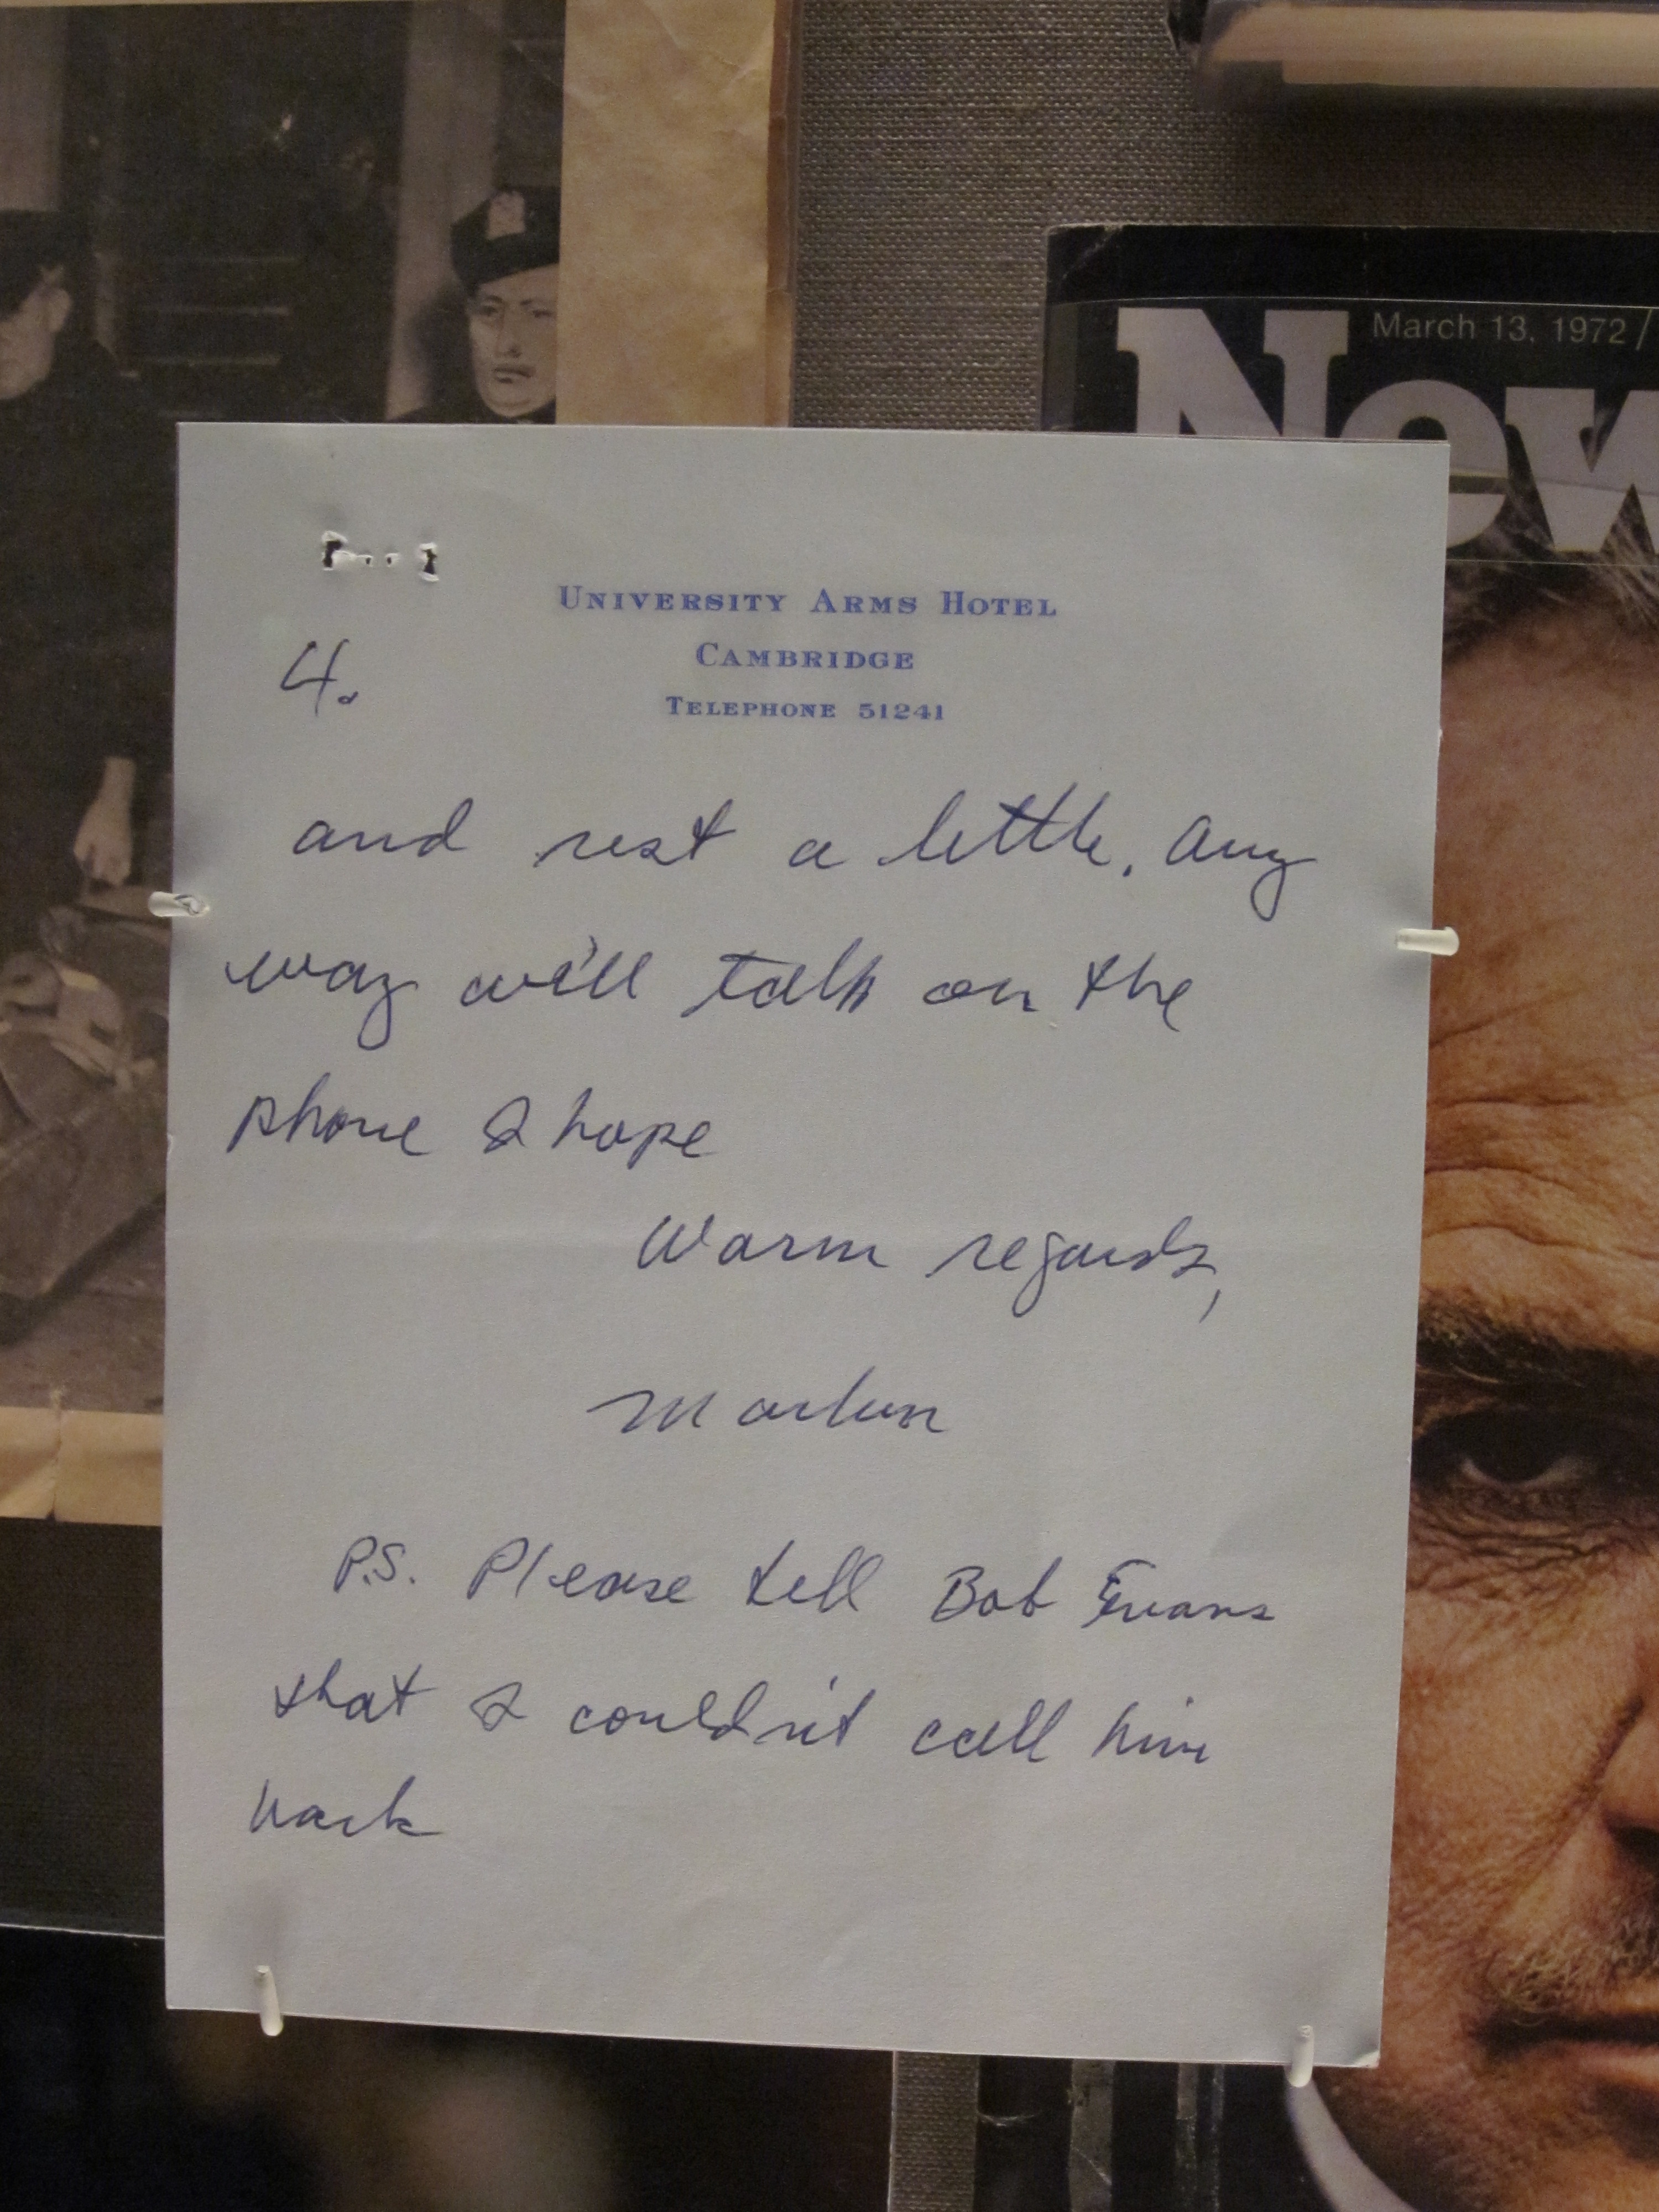 March 13, 1972 /
New
UNIVERSITY ARMS HOTEL
CAMBRIDGE
TELEPHONE 51241
4.
and rest a little. Any
way we'll talk on the
phone I hope
Warm regards,
Marlon
P.S. Please tell Bob Evans
that I couldn't call him
back